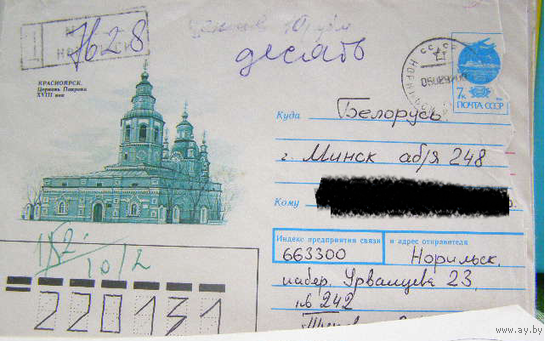 №
7628
десять
КРАСНОЯРСК.
Церковь Покрова
XVIII век
СССР
7к
ПОЧТА СССР
Куда Беларусь
г. Минск аб/я 248
Кому
Индекс предприятия связи и адрес отправителя
663300 Норильск,
набер. Урванцева 23,
кв 242
182
10/2
220131
www.ay.by